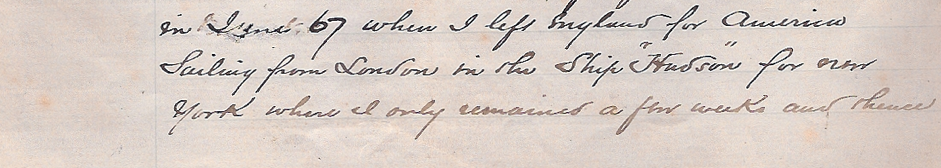 in June 67 when I left England for America
Sailing from London in the Ship "Hudson" for new
York where I only remained a few weeks and thence